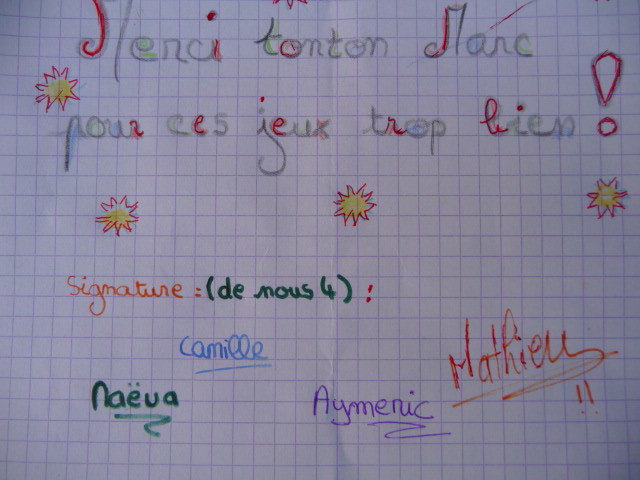 Merci tonton Marc
pour ces jeux trop bien !
Signature : (de nous 4) :
Camille
Mathieu !!
Naëva
Aymeric